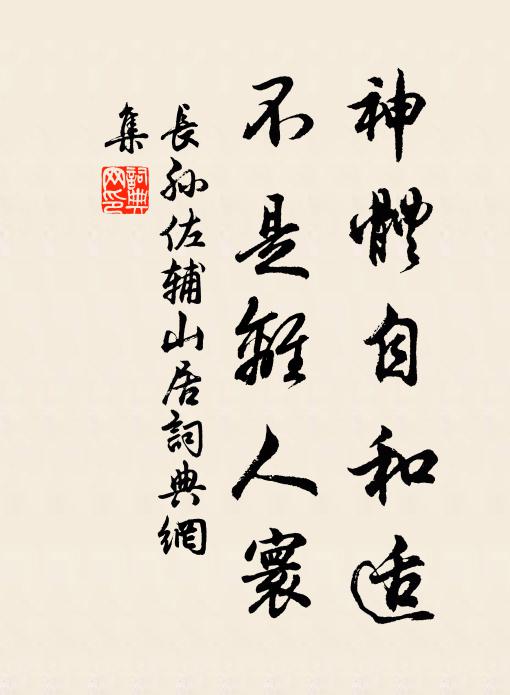 神體自和适
不是離人寰
長孙佐辅山居詞典網
集
詞典
网印